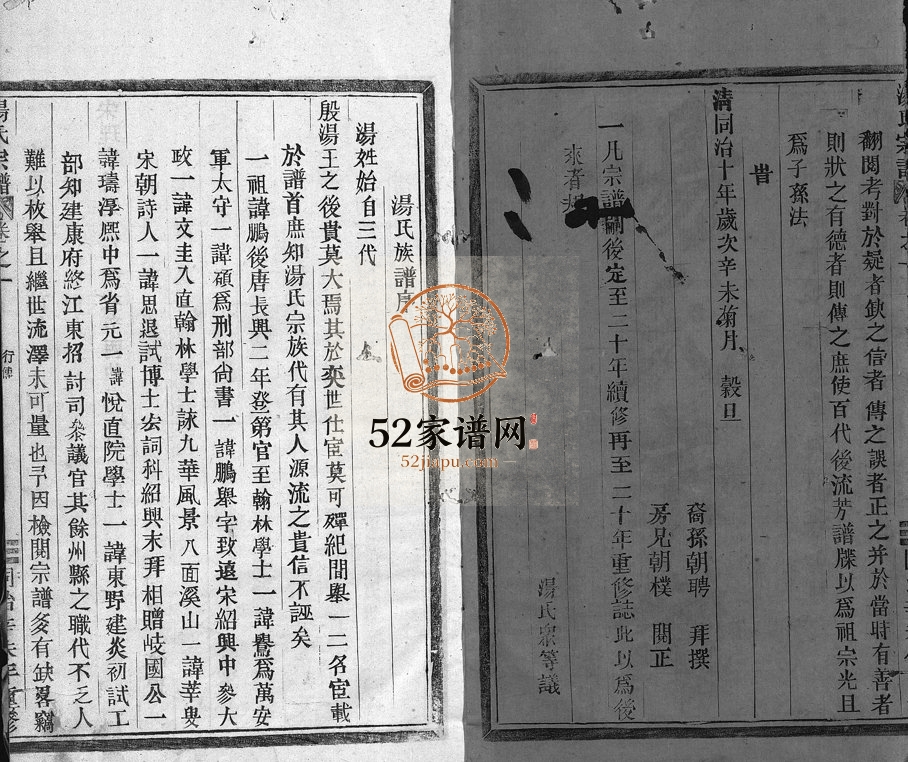 翻閱考對於疑者缺之信者傳之誤者正之并於當時有善者
則狀之有德者則傳之庶使百代後流芳譜牒以爲祖宗光且
爲子孫法
旹
清同治十年歲次辛未菊月 穀旦
裔孫朝聘 拜撰
房兄朝樸 閱正
一凡宗譜嗣後定至二十年續修再至二十年重修誌此以爲後
來者
湯氏衆等議
湯氏族譜序
湯姓始自三代
殷湯王之後貴莫大焉其於奕世仕宦莫可殫紀間舉一二名宦載
於譜首庶知湯氏宗族代有其人源流之貴信不誣矣
一祖諱鵬後唐長興二年登第官至翰林學士一諱鷟爲萬安
軍太守一諱碩爲刑部尙書一諱鵬舉字致遠宋紹興中參大
政一諱文圭入直翰林學士詠九華風景八面溪山一諱莘叟
宋朝詩人一諱思退試博士宏詞科紹興末拜相贈岐國公一
諱璹淳熈中爲省元一諱悅直院學士一諱東野建炎初試工
部知建康府終江東招討司叅議官其餘州縣之職代不乏人
難以枚舉且繼世流澤未可量也予因檢閱宗譜多有缺畧竊
湯氏宗譜
卷之一
52家谱网
52jiapu.com